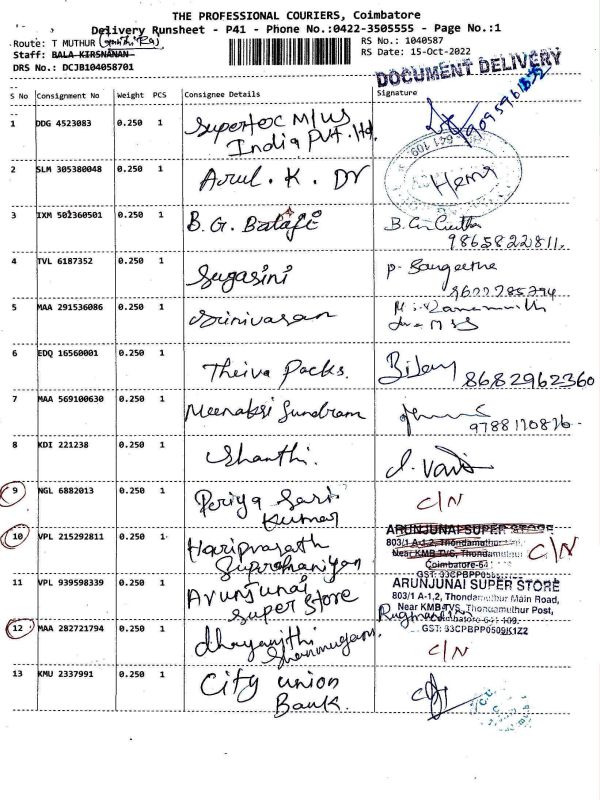 THE PROFESSIONAL COURIERS, Coimbatore
Delivery Runsheet - P41 - Phone No.:0422-3505555 - Page No.:1
Route: T MUTHUR
RS No.: 1040587
Staff: BALA KIRSNANAN
RS Date: 15-Oct-2022
DRS No.: DCJB104058701
DOCUMENT DELIVERY
S No Consignment No Weight PCS Consignee Details Signature
1 DDG 4523083 0.250 1 Supertex M/us
India Pvt. ltd.
641 109
2 SLM 305380048 0.250 1 Arul. K. Dr Hema
3 IXM 502360501 0.250 1 B.G. Balaji
9865822811.
4 TVL 6187352 0.250 1 Sugasini P. Sangeetha
9622285294
5 MAA 291536086 0.250 1 Srinivasan
6 EDQ 16560001 0.250 1 Theiva Packs. 8682962360
7 MAA 569100630 0.250 1 Meenaksi Sundram
9788110876
8 KDI 221238 0.250 1 Shanthi.
9 NGL 6882013 0.250 1 Periya Sari
Kumar C/N
10 VPL 215292811 0.250 1 Hariprasath
ARUNJUNAI SUPER STORE
803/1 A-1,2, Thondamuthur
Near KMB TVS, Thondamuthur
Coimbatore-641
C/N
11 VPL 939598339 0.250 1 Arunjunai
Super Store
ARUNJUNAI SUPER STORE
803/1 A-1,2, Thondamuthur Main Road,
Near KMB TVS, Thondamuthur Post,
Coimbatore-641 109.
GST: 33CPBPP0509K1Z2
12 MAA 282721794 0.250 1 dhayanithi
Shanmugam. C/N
13 KMU 2337991 0.250 1 City union
Bank.